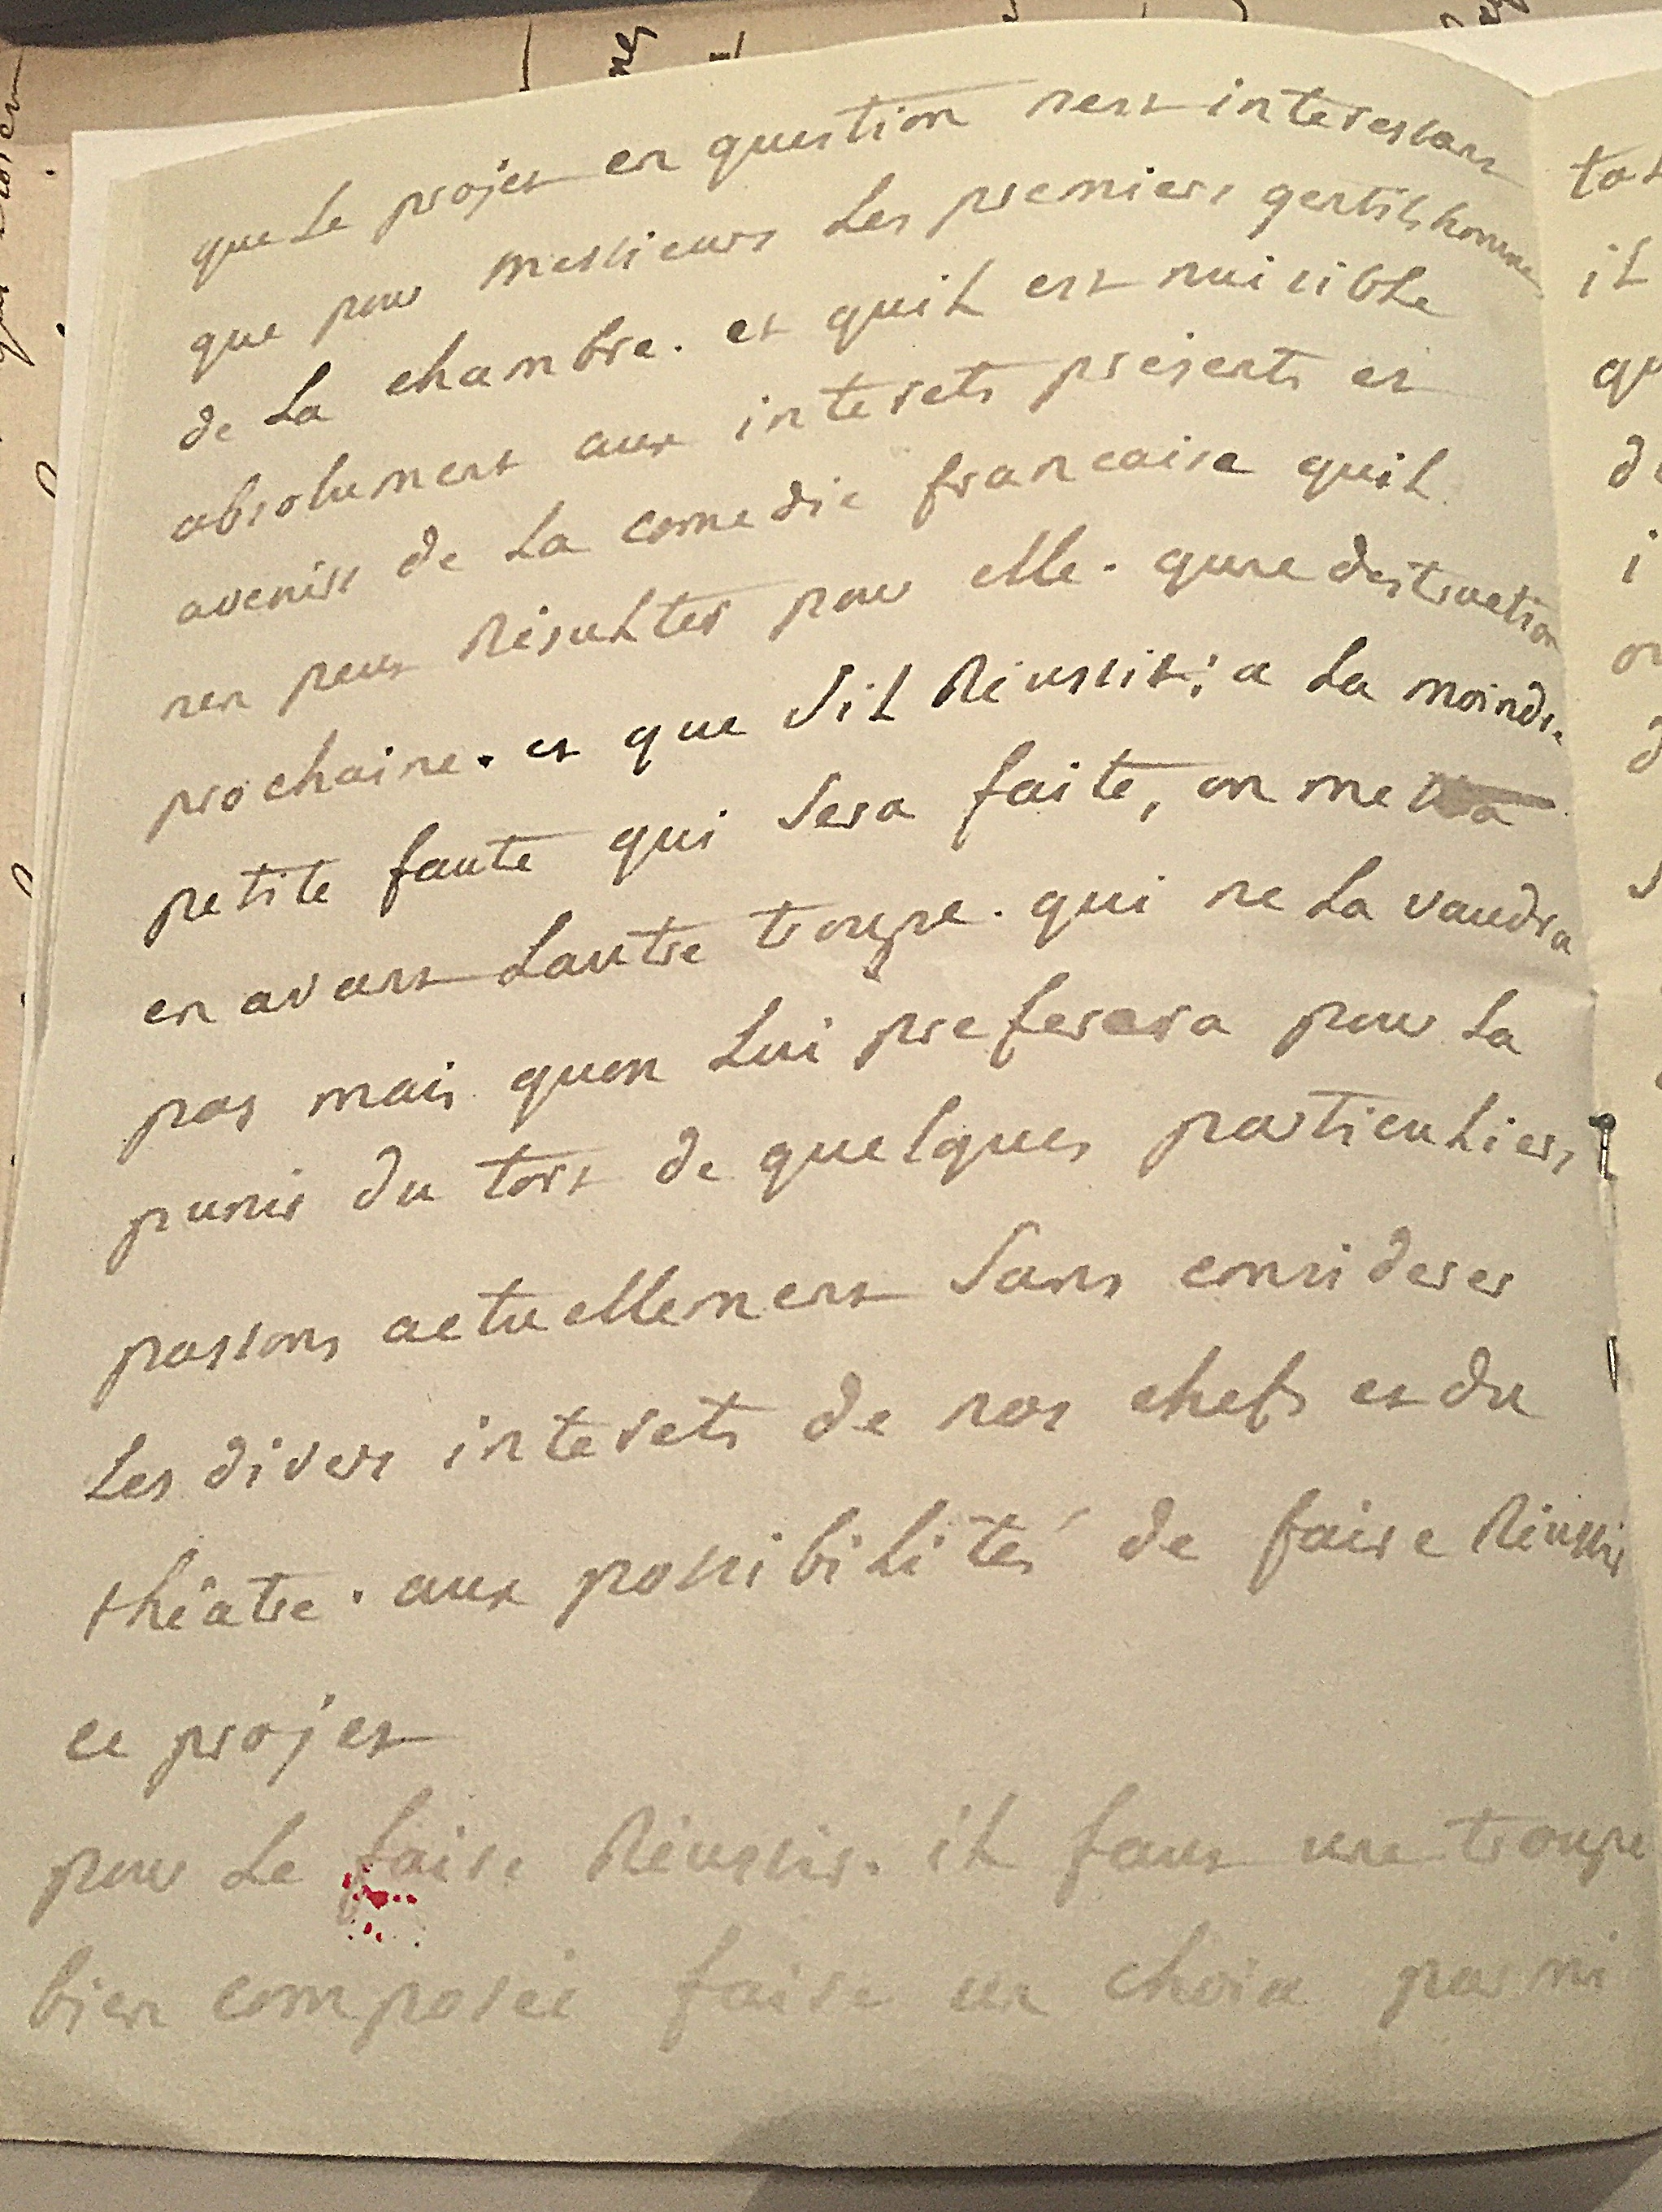 que le projet en question nest interessant
que pour messieurs les premiers gentilshommes
de la chambre. et quil est nuisible
absolument aux interets présents et
avenirs de la comedie francaise quil
nen peut résulter pour elle. qune destruction
prochaine. et que sil réussit, a la moindre
petite faute qui sera faite, on mettra
en avant lautre troupe. qui ne la vaudra
pas mais quon lui preferera pour la
punir du tort de quelques particuliers,
passons actuellement sans considerer
les divers interets de nos chefs et du
théâtre. aux possibilités de faire réussir
ce projet
pour le faire réussir. il faut une troupe
bien composée faire un choix parmi